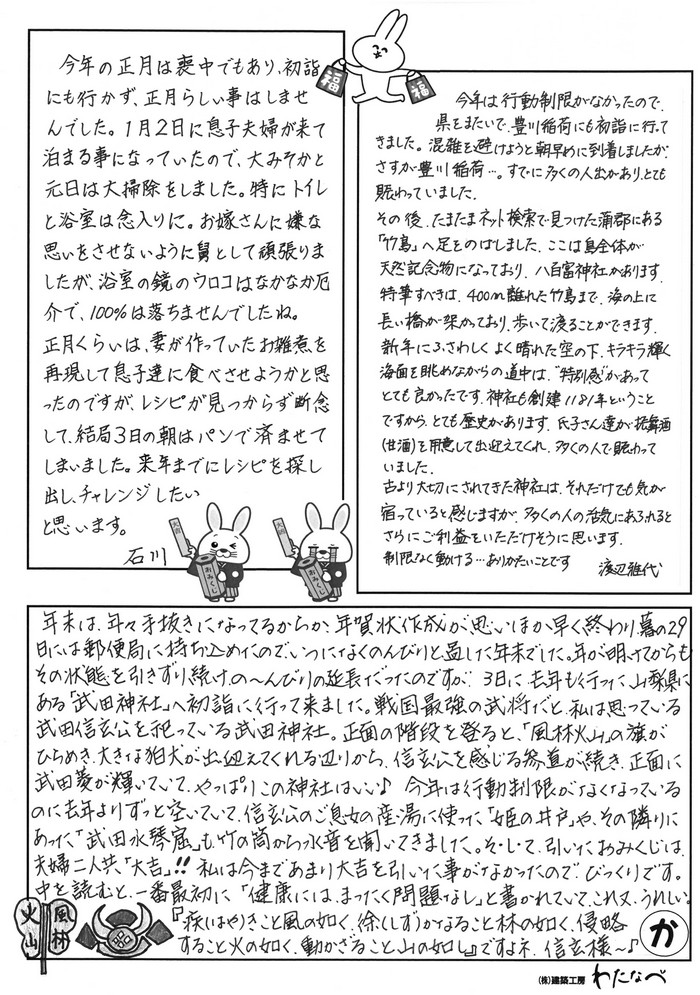 今年の正月は喪中でもあり、初詣
にも行かず、正月らしい事はしませ
んでした。1月2日に息子夫婦が来て
泊まる事になっていたので、大みそかと
元日は大掃除をしました。特にトイレ
と浴室は念入りに。お嫁さんに嫌な
思いをさせないように舅として頑張りま
したが、浴室の鏡のウロコはなかなか厄
介で、100%は落ちませんでしたね。
正月くらいは、妻が作っていたお雑煮を
再現して息子達に食べさせようかと思
ったのですが、レシピが見つからず断念
して、結局3日の朝はパンで済ませて
しまいました。来年までにレシピを探し
出し、チャレンジしたい
と思います。
石川
大吉
おみくじ
大吉
おみくじ
福
福
今年は行動制限がなかったので、
県をまたいで、豊川稲荷にも初詣に行って
きました。混雑を避けようと朝早めに到着しましたが、
さすが豊川稲荷…。すでに多くの人出があり、とても
賑わっていました。
その後、たまたまネット検索で見つけた蒲郡にある
「竹島」へ足をのばしました。ここは島全体が
天然記念物になっており、八百富神社があります。
特筆すべきは、400m離れた竹島まで、海の上に
長い橋が架かっており、歩いて渡ることができます。
新年にふさわしく よく晴れた空の下、キラキラ輝く
海面を眺めながらの道中は、“特別感”があって
とても良かったです。神社も創建1181年ということ
ですから、とても歴史があります。氏子さん達が振舞酒
(甘酒)を用意して出迎えてくれ、多くの人で賑わって
いました。
古より大切にされてきた神社は、それだけでも気が
宿っていると感じますが、多くの人の活気にあふれると
さらにご利益をいただけそうに思います。
制限なく動ける…ありがたいことです 渡辺雅代
年末は、年々手抜きになってるからか、年賀状作成が思いほか早く終わり、暮の29
日には郵便局に持ち込めたので、いつになくのんびりと過した年末でした。年が明けてからも
その状態を引きずり続け、の～んびりの延長だったのですが、3日に、去年も行った、山梨県に
ある「武田神社」へ初詣に行って来ました。戦国最強の武将だと、私は思っている
武田信玄公を祀っている武田神社。正面の階段を登ると、「風林火山」の旗が
ひらめき、大きな狛犬が出迎えてくれる辺りから、信玄公を感じる参道が続き、正面に
武田菱が輝いていて、やっぱりこの神社はいい♪ 今年は行動制限がなくなっている
のに去年よりずっと空いていて、信玄公のご息女の産湯に使った「姫の井戸」や、その隣りに
あった「武田水琴窟」も竹の筒から水音を聞いてきました。そ・し・て、引いたおみくじは、
夫婦二人共「大吉」!! 私は今まであまり大吉を引いた事がなかったので、びっくりです。
中を読むと、一番最初に「健康には、まったく問題なし」と書かれていて、これ又、うれしい。
『疾(はや)きこと風の如く、徐(しず)かなること林の如く、侵略
すること火の如く、動かざること山の如し』ですよネ、信玄様～♪
風林
火山
か
(株)建築工房 わたなべ